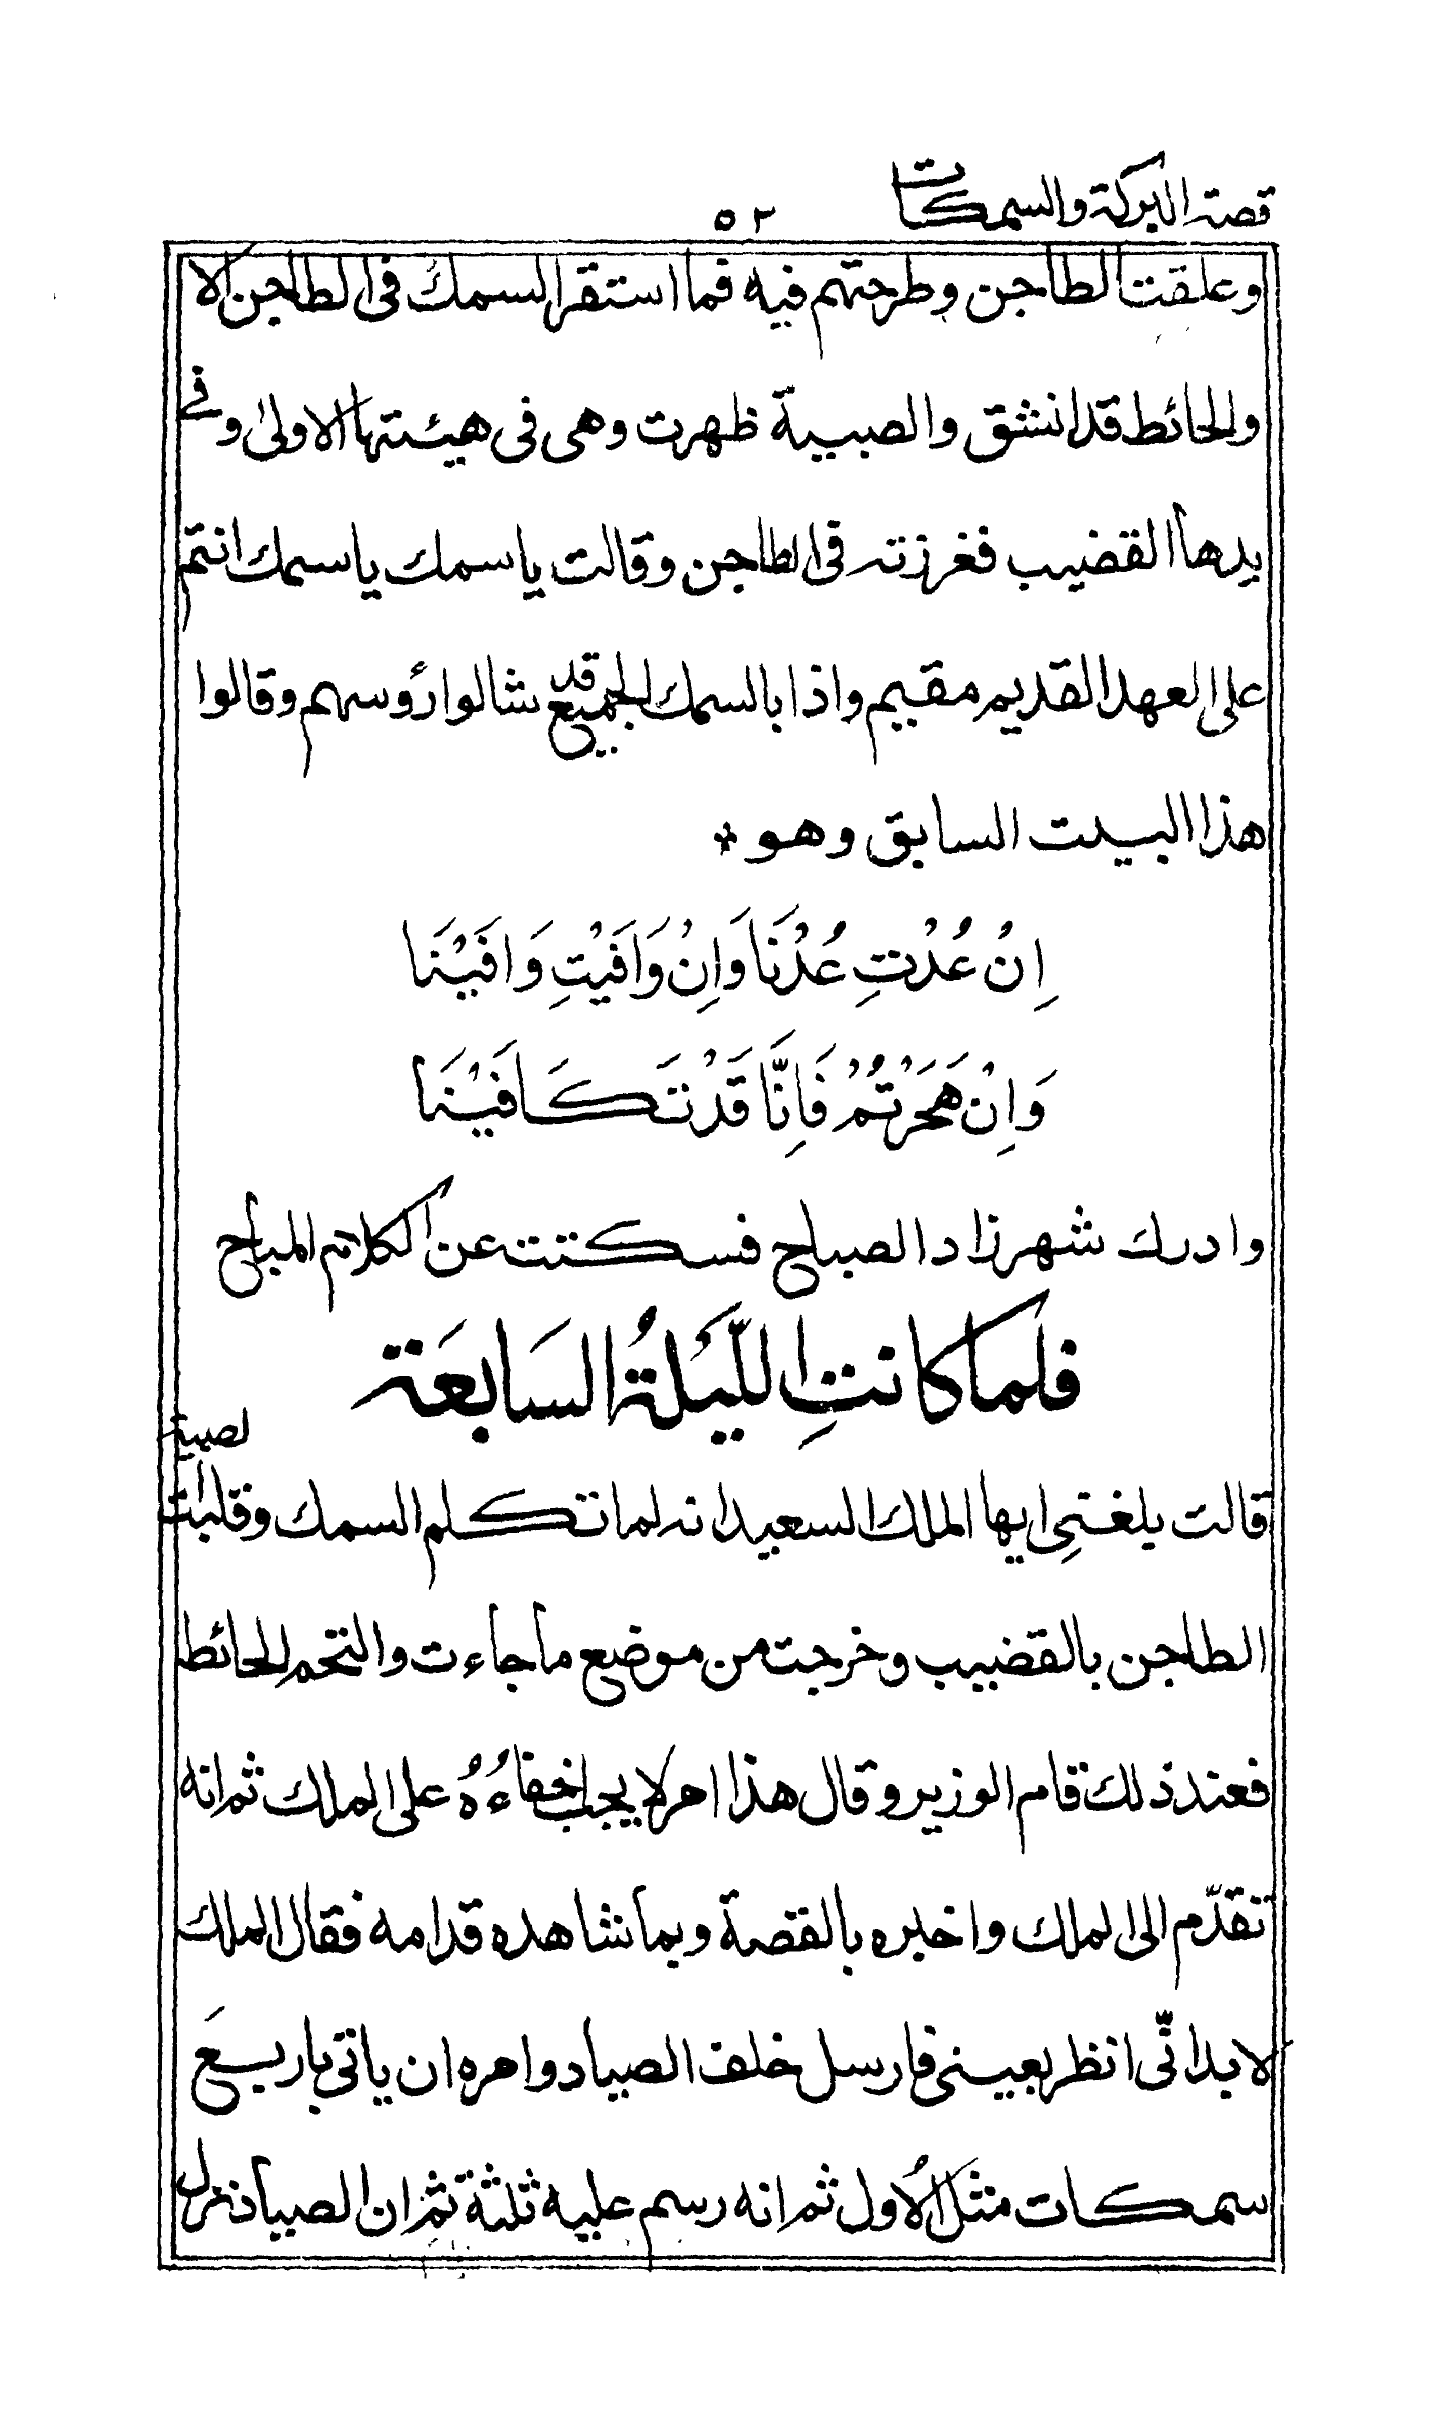 قصة البركة والسمكات
٥٢
وعلقت الطاجن وطرحتهم فيه فما استقر السمك فى الطاجن الا
والحائط قد انشق والصبية ظهرت وهى فى هيئتها الاولىٰ وفے
يدها القضيب فغرزته فى الطاجن وقالت ياسمك ياسمك انتم
على العهد القديم مقيم واذا بالسمك الجميع قد شالوا رؤسهم وقالوا
هذا البيت السابق وهو *
اِنْ عُدْتِ عُدْنَا وَاِنْ وَافَيْتِ وَافَيْنَا
وَاِنْ هَجَرْتُمْ فَاِنَّا قَدْ تَكَافَيْنَا
وادرك شهرزاد الصباح فسكتت عن الكلام المباح
فلما كانتِ اللَّيْلَةُ السَابعَة
قالت بلغنِى ايها الملك السعيد انه لما تكلم السمك وقلبت الصبية
الطاجن بالقضيب وخرجت من موضع ماجاءت والتحم الحائط
فعند ذلك قام الوزير وقال هذا امر لا يجب اخفاءُهُ على الملك ثم انه
تقدّم الى الملك واخبره بالقصة وبما شاهده قدامه فقال الملك
لا بد انّى انظر بعينى فارسل خلف الصياد وامره ان ياتى باربعَ
سمكات مثل الاُول ثم انه رسم عليه ثلثة ثم ان الصياد نزل